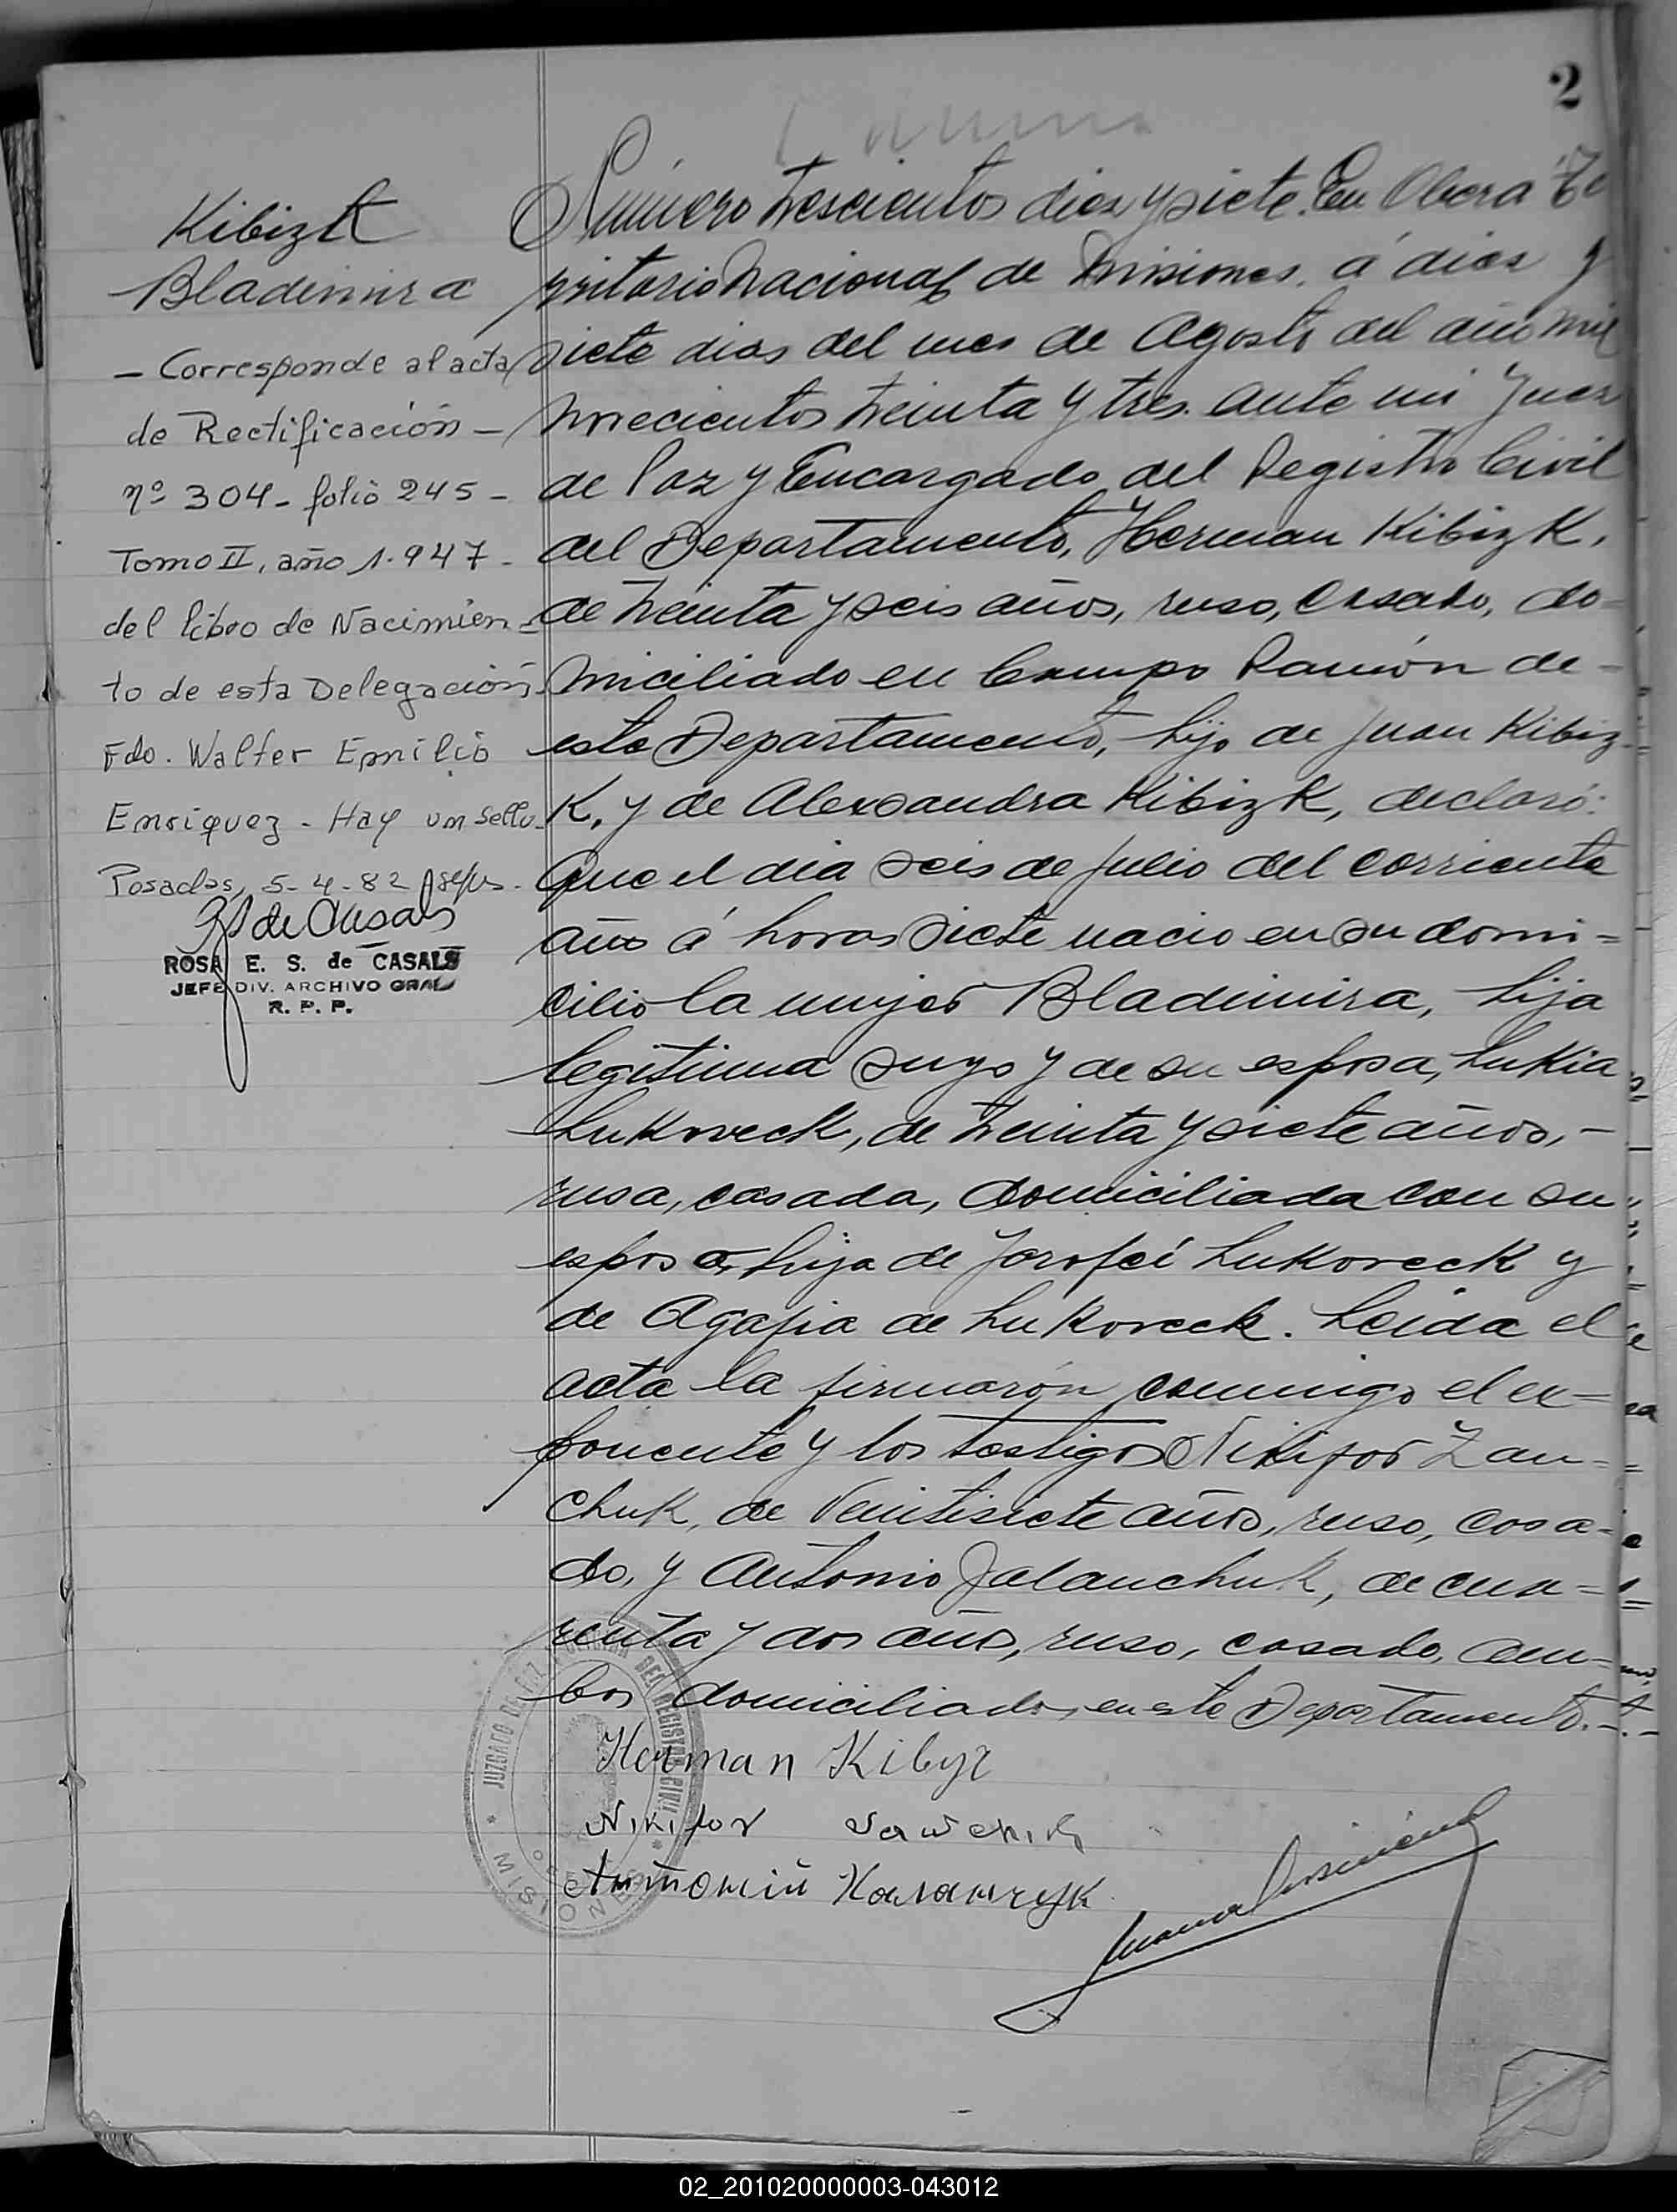 2
Kibizk
Bladimira
- Corresponde al acta
de Rectificación -
nº 304 - folio 245 -
Tomo II, año 1.947 -
del libro de Nacimien-
to de esta Delegación.
Fdo. Walter Emilio
Enriquez - Hay un sello -
Posadas, 5-4-82
ROSA E. S. de CASALS
JEFE DIV. ARCHIVO GRAL
R. P. P.
Número trescientos diez y siete. En Obera Te
rritorio Nacional de Misiones, á diez y
siete dias del mes de Agosto del año mil
novecientos treinta y tres. ante mi Juez
de Paz y Encargado del Registro Civil
del Departamento, Herman Kibizk,
de treinta y seis años, ruso, casado, do-
miciliado en Campo Ramón de-
este Departamento, hijo de Juan Kibiz-
k, y de Alexsandra Kibizk, declaró:
Que el dia seis de julio del corriente
año á horas siete nacio en su domi=
cilio la mujer Bladimira, hija
legitima suya y de su esposa, Lukia
Lukoveck, de treinta y siete años, -
rusa, casada, domiciliada con su
esposo, hija de Jorofei Lukoveck y
de Agafia de Lukoveck. Leida el
acta la firmarón conmigo el ex=
ponente y los testigos Nikifor Zan-
chuk, de veintisiete años, ruso, casa-
do, y Antonio Jalanchuk, de cua=
renta y dos años, ruso, casado, am-
bos domiciliados en este Departamento.-.-
Herman Kibyz
Nikifor
JUZGADO DE PAZ Y OFICINA DEL REGISTRO CIVIL
* MISIONES *
02_201020000003-043012